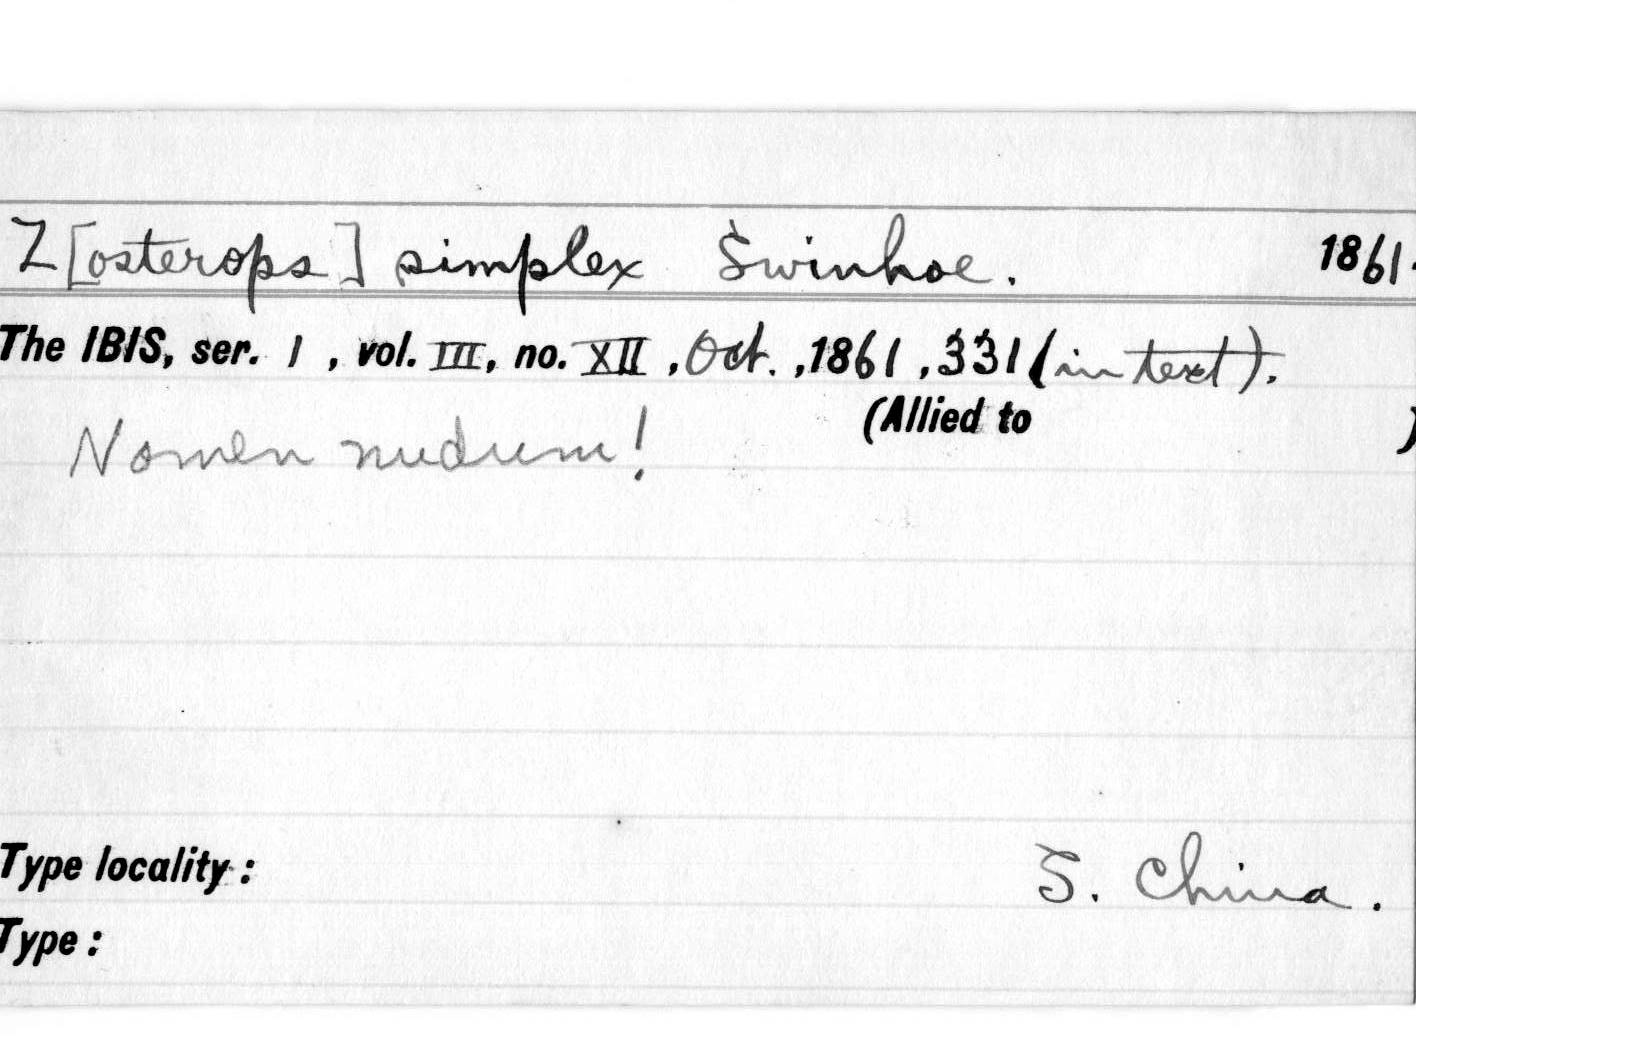 Z[osterops] simplex Swinhoe. 1861.
The IBIS, ser. 1, vol. III, no. XII, Oct., 1861, 331 (in text).
(Allied to )
Nomen nudum!
Type locality: S. China.
Type: